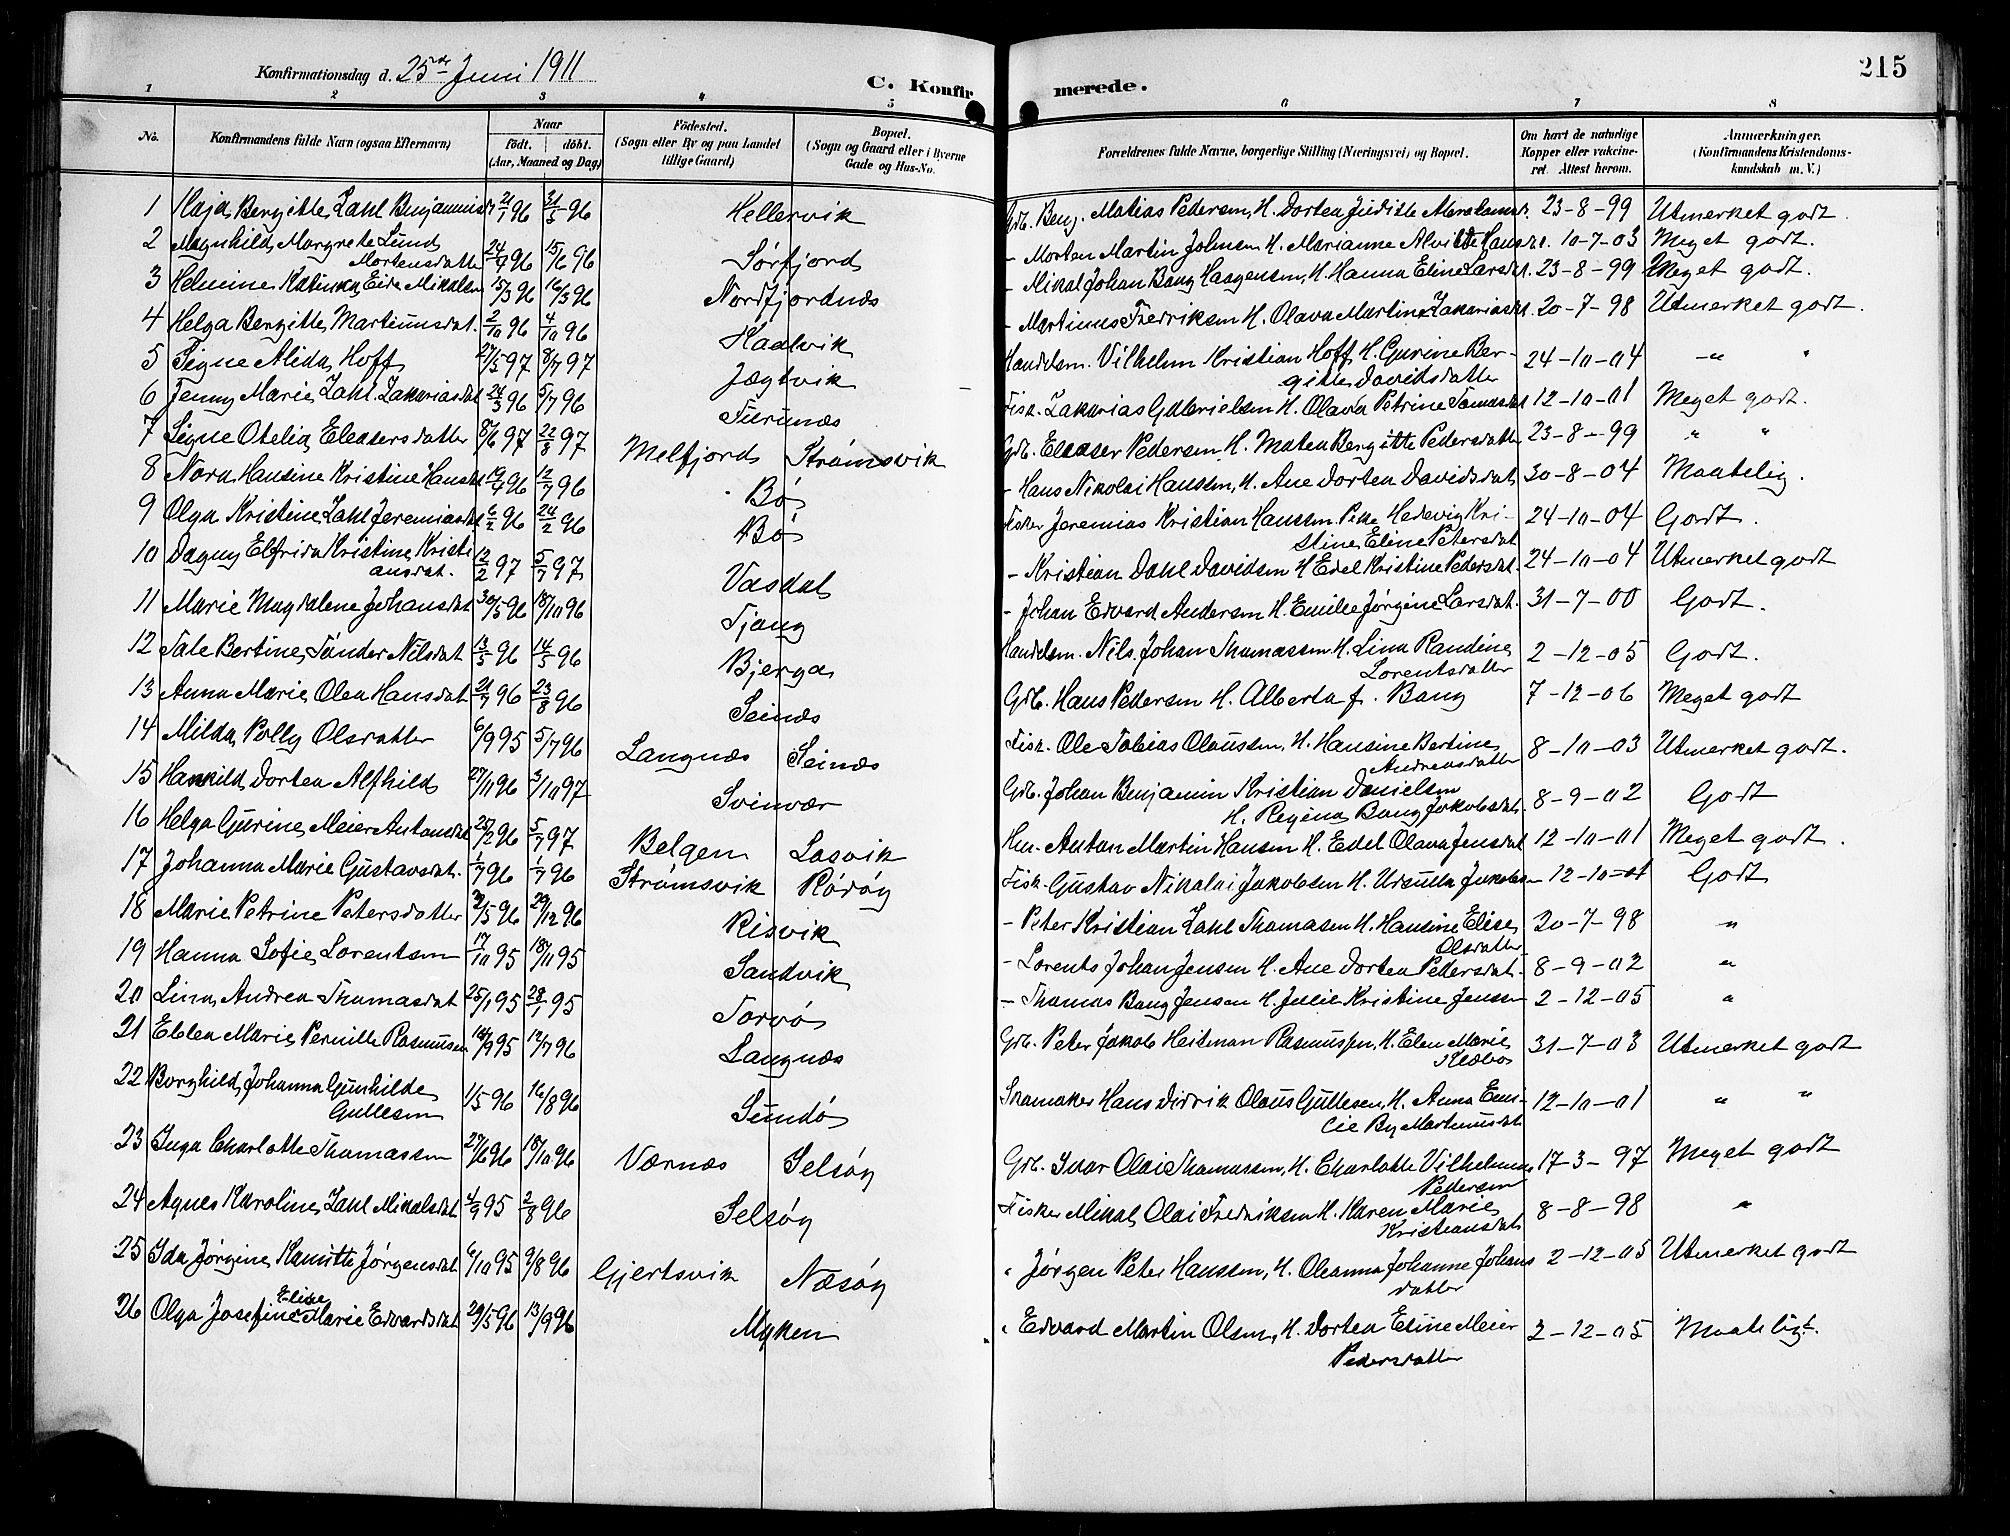 215
Konfirmationsdag d. 25de Juni 1911
C. Konfirmerede.
1 2 3 4 5 6 7 8
No.
Konfirmandens fulde Navn (ogsaa Efternavn)
Naar
födt. döbt.
(Aar, Maaned og Dag)
Födested.
(Sogn eller By og paa Landet tillige Gaard)
Bopæl.
(Sogn og Gaard eller i Byerne Gade og Hus-No.
Forældrenes fulde Navne, borgerlige Stilling (Næringsvei) og Bopæl.
Om havt de naturlige Kopper eller vaccineret. Attest herom.
Anmærkninger.
(Konfirmandens Kristendomskundskab m. V.)
1 Kaja Bergitte Zahl Benjaminsd. 21/1 96 31/5 96 Hellervik Grb. Benj. Matias Pedersen, H. Dorten Judithe Abrahamsd. 23-8-99 Utmerket godt.
2 Magnhild Margrete Lund Mortensdatter 24/4 96 15/6 96 Sørfjord - Morten Martin Johnsen H. Marianne Alvilde Hansd. 10-7-03 Meget godt.
3 Helmine Katinka Eide Mikalsen 15/3 96 16/3 96 Nordfjordnæs - Mikal Johan Bang Haagensen, H. Hanna Eline Larsdt. 23-8-99 Meget godt.
4 Helga Bergitte Martinusdat. 2/10 96 4/10 96 Haalvik - Martinus Fredriksen H. Olava Martine Zakariasdt. 20-7-98 Utmerket godt.
5 Signe Alida Hoff 27/5 97 8/7 97 Jægtvik Handelsm. Vilhelm Kristian Hoff, H. Gurine Bergitte Davidsdatter 24-10-04 " "
6 Jenny Marie Zahl Zakariasdat 24/3 96 5/7 96 Furunæs Fisk. Zakarias Gabrielsen H. Olava Petrine Tomasdt 12-10-01 Meget godt.
7 Signe Otelia Eleasersdatter 8/6 97 22/8 97 Melfjord Strømsvik Grb. Eleaser Pedersen H. Maten Bergitte Pedersdatter 23-8-99 " "
8 Nora Hansine Kristine Hansdt 19/4 96 12/7 96 Bø - Hans Nikolai Hanssen, H. Ane Dorten Davidsdat. 30-8-04 Maatelig.
9 Olga Kristine Zahl Jeremiasdat 6/2 96 24/2 96 Bø Fisker Jeremias Kristian Hanssen Hedevig Kristine Eline Petersdat 24-10-04 Godt.
10 Dagny Elfrida Kristine Kristiansdat. 12/2 97 5/7 97 Vasdal - Kristian Dahl Davidsen H Edel Kristine Pedersdat. 24-10-04 Utmerket godt
11 Marie Magdalene Johansdat 30/5 96 18/10 96 Tjong - Johan Edvard Andersen H. Emilie Jørgine Larsdat. 31-7-00 Godt.
12 Tale Bertine Tønder Nilsdat 13/3 96 14/5 96 Bjerga Handelsm. Nils Johan Thomassen H. Lina Randine Lorentsdatter 2-12-05 Godt.
13 Anna Marie Olea Hansdat 21/7 96 23/8 96 Seinæs Grb. Hans Pedersen H. Alberta f. Bang 7-12-06 Meget godt
14 Milda Polly Olsdatter 6/9 95 5/7 96 Langnæs Seinæs Fisk. Ole Tobias Olaussen, H. Hansine Bertine Andreasdatter 8-10-03 Utmerket godt.
15 Hankild Dorten Alfhild 27/11 96 3/10 97 Svinvær Grb. Johan Benjamin Kristian Danielsen H. Regina Bang Jakobsdat. 8-9-02 Godt
16 Helga Gurine Meier Antonsdat 25/12 96 5/7 97 Belgen Lasvik Hus. Anton Martin Hansen H. Edel Olava Jensdat 12-10-01 Meget godt.
17 Johanna Marie Gustavsdat. 1/7 96 1/7 96 Strømsvik Rødøy Fisk. Gustav Nikolai Jakobsen H. Ursulla Jakobs 12-10-01 Godt
18 Marie Petrine Petersdatter 2/5 96 29/12 96 Risvik - Peter Kristian Zahl Thomasen H. Hansine Elise Olsdatter 20-7-98 "
19 Hanna Sofie Lorentsen 17/10 95 18/11 95 Sandvik - Lorents Johan Jensen H. Ane Dorten Pedersdat. 8-9-02 "
20 Lina Andrea Thomasdat 25/1 95 28/1 95 Torvø - Thomas Bang Jensen H. Julie Kristine Jensen 2-12-05 "
21 Ebba Marie Pernille Rasmussen 14/9 95 12/7 96 Langnæs Grb. Peter Jakob Heitman Rasmussen, H. Elen Marie Klæbo 31-7-03 Utmerket godt
22 Borghild Johanna Gunhilde Gullesen 1/5 96 16/8 96 Sundø Skomaker Hans Didrik Olaus Gullesen, H. Anna Emilie By Martinusdat 12-10-01 " "
23 Inga Charlotte Thomassen 27/6 96 18/10 96 Værnæs Selsøy Grb. Ivar Olai Thomassen, H. Charlotte Vilhelmine Pedersen 17-3-97 Meget godt
24 Agnes Karoline Zahl Mikalsdat 4/9 95 2/8 96 Selsøy Fisker Mikal Olai Fredriksen H. Karen Marie Kristiansdat 8-8-98 "
25 Ida Jørgine Kamitte Jørgensdat 6/10 95 9/8 96 Gjertsvik Næsøy " Jørgen Peter Hanssen, H. Oleanna Johanne Johansdatter 2-12-05 Utmerket godt
26 Olga Josefine Elise Marie Edvardsdat 29/5 96 13/9 96 Myken " Edvard Martin Olsen, H. Dorten Eline Meier Pedersdatter 2-12-05 Maateligt.